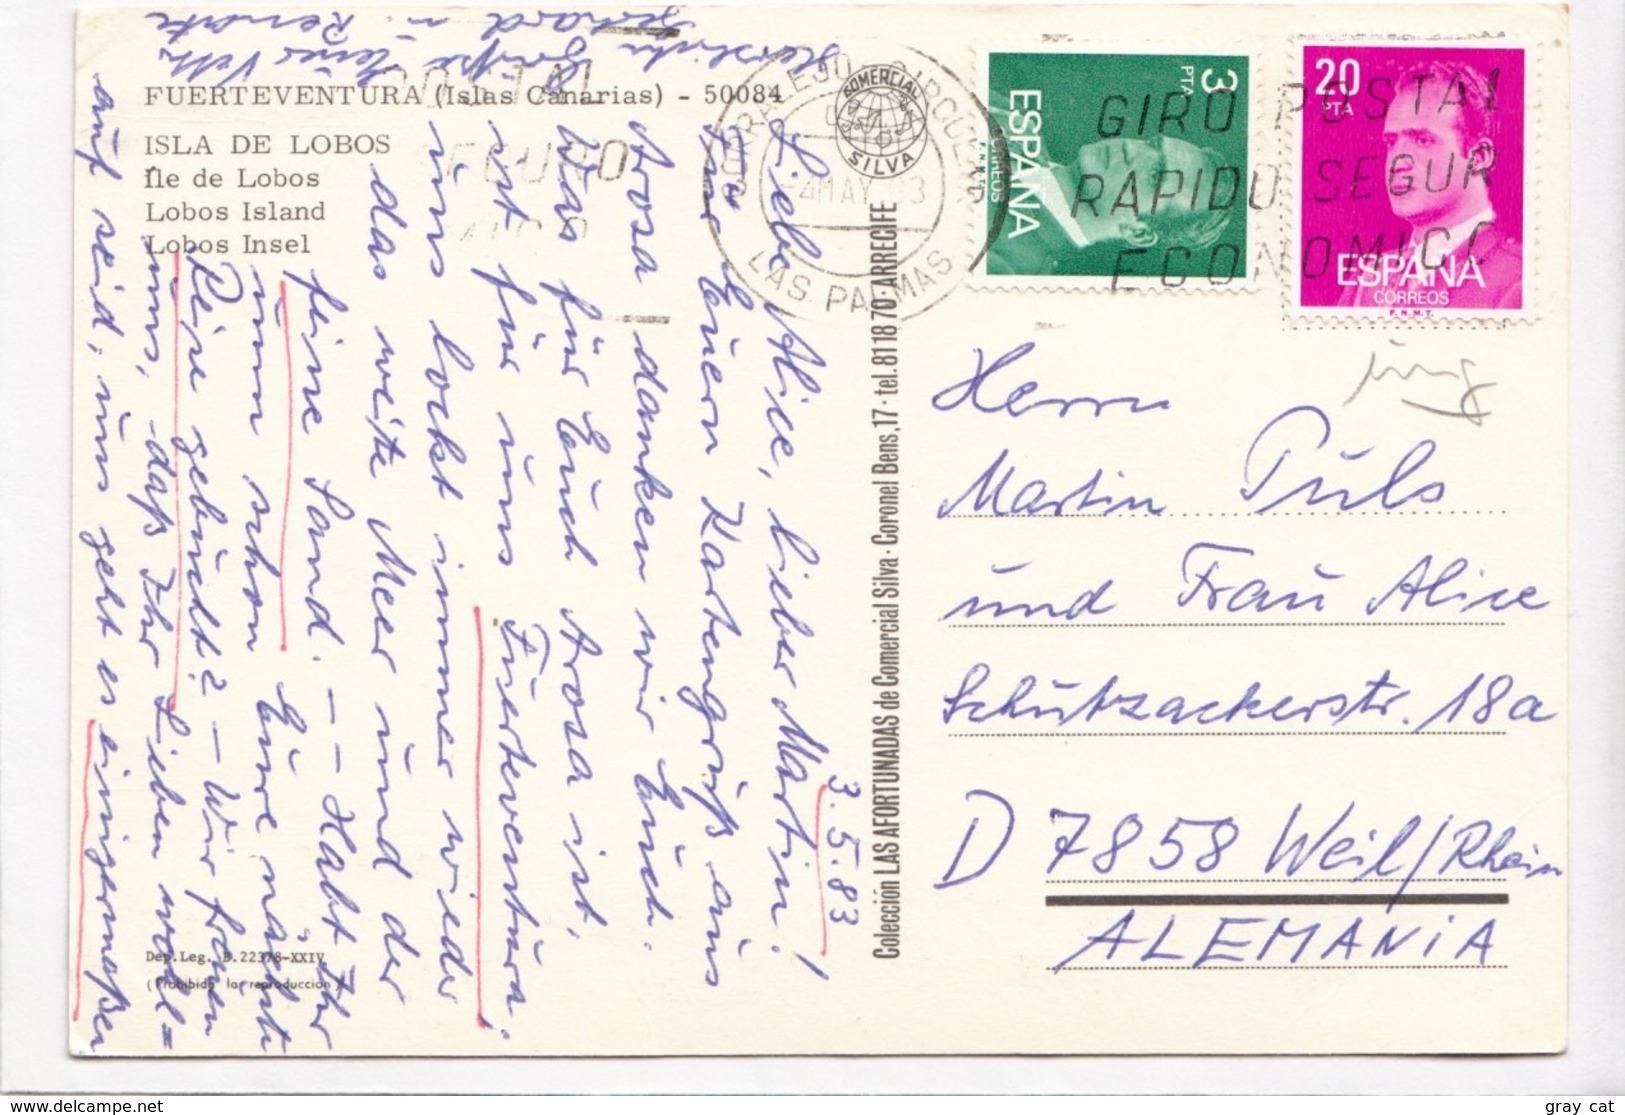 FUERTEVENTURA (Islas Canarias) - 50084
ISLA DE LOBOS
Île de Lobos
Lobos Island
Lobos Insel
Dep.Leg. B.22378-XXIV
(Prohibida la reproducción)
3.5.83
Liebe Alice, lieber Martin!
Für Euern Kartengruß aus
Arosa danken wir Euch.
Was für Euch Arosa ist,
ist für uns Fuerteventura;
uns lockt immer wieder
das weite Meer und der
feine Sand. -- Habt Ihr
nun schon Eure nächste
Reise gebucht? - Wir freuen
uns, daß Ihr Lieben wohl=
auf seid; uns geht es einigermaßen
Herzliche Grüße
Gerhard u. Renate
Colección LAS AFORTUNADAS de Comercial Silva · Coronel Bens, 17 · tel. 81 18 70 · ARRECIFE
COMERCIAL
SILVA
LAS PALMAS
-4 MAY 83
3
PTA
ESPAÑA
CORREOS
F.N.M.T.
20
PTA
ESPAÑA
CORREOS
F.N.M.T.
GIRO POSTAL
RAPIDO SEGUR
ECONOMICO
Herrn
Martin Puls
und Frau Alice
Schützackerstr. 18a
D 7858 Weil/Rhein
ALEMANIA
gray_cat
https://www.delcampe.net